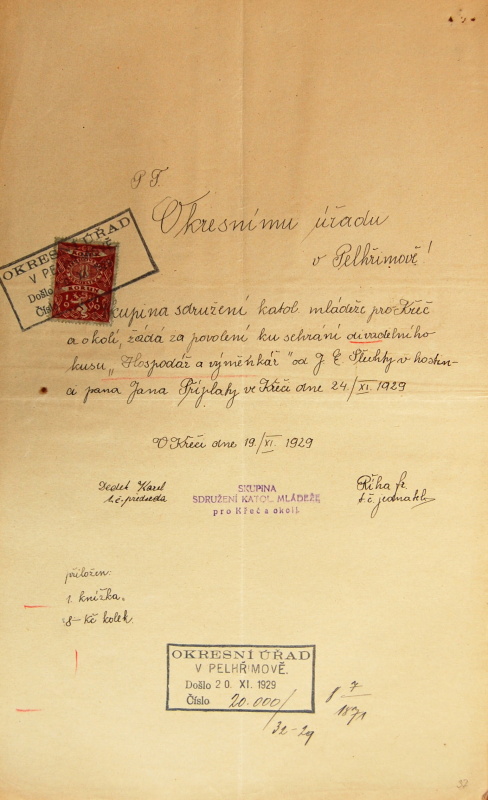 P.T.
Okresnímu úřadu
v Pelhřimově!
OKRESNÍ ÚŘAD
V PEL
Došlo
Čís
KOLEK
8 8
KORUN
kupina sdružení katol. mládeže pro Křeč
a okolí, žádá za povolení ku sehrání divadelního
kusu „Hospodář a výměnkář" od J. E. v hostin-
ci pana Jana Příplaty ve Křči dne 24./XI. 1929
V Křči dne 19./XI. 1929
Karel
t.č. předseda
SKUPINA
SDRUŽENÍ KATOL. MLÁDEŽE
pro Křeč a okolí.
Říha Fr.
t.č. jednatel
přiložen:
1. knížka.
8- Kč kolek.
OKRESNÍ ÚŘAD
V PELHŘIMOVĚ.
Došlo 20. XI. 1929
Číslo 20.000/
32-29
8 7/1871
32